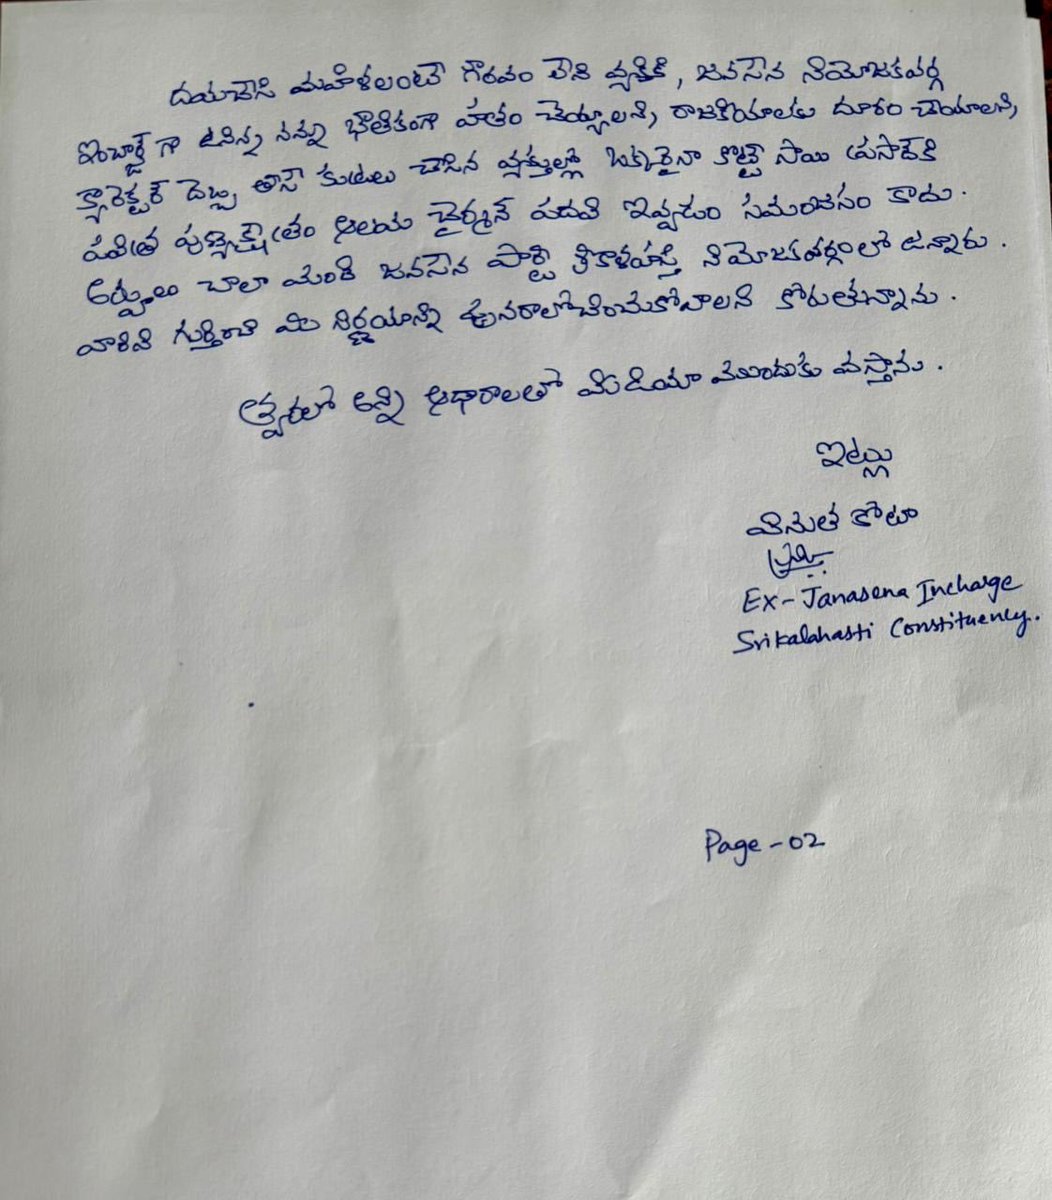 దయచేసి మహిళలంటే గౌరవం లేని వ్యక్తికి, జనసేన నియోజకవర్గ
ఇంచార్జ్ గా ఉనిన్న నన్ను భౌతికంగా హతం చెయ్యాలని, రాజకీయాలకు దూరం చేయాలని,
క్యారెక్టర్ దెబ్బ తీసే కుట్రలు చేసిన వ్యక్తుల్లో ఒక్కరైనా కొట్టే సాయి ప్రసాద్‌కి
పవిత్ర పుణ్యక్షేత్రం ఆలయ చైర్మన్ పదవి ఇవ్వడం సమంజసం కాదు.
అర్హులు చాలా మంది జనసేన పార్టీ శ్రీకాళహస్తి నియోజకవర్గంలో ఉన్నారు.
వారిని గుర్తించి మీ నిర్ణయాన్ని పునరాలోచించుకోవాలని కోరుతున్నాను.
త్వరలో అన్ని ఆధారాలతో మీడియా ముందుకు వస్తాను.
ఇట్లు
వినుత కోటా
Ex-Janasena Incharge
Srikalahasti Constituency.
Page-02